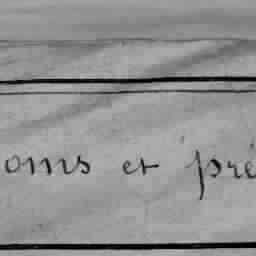 oms et pré